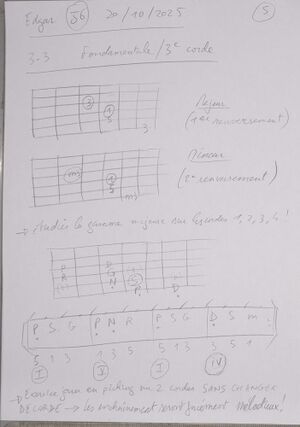 Edgar 56 20/10/2025 5
3.3 Fondamentale / 3e corde
3 1
5
3
Majeur
(1er renversement)
m3 1
5
m3
Mineur
(2e renversement)
→ étudier la gamme majeure sur les cordes 1, 2, 3, 4 !
P D
R G
N S
P D
P S G | P N R | P S G | D S m
5 1 3 1 3 5 5 1 3 3 5 1
I V I IV
→ Exercice jouer en picking sur 2 cordes SANS CHANGER
DE CORDE → les enchaînements seront forcément mélodieux !